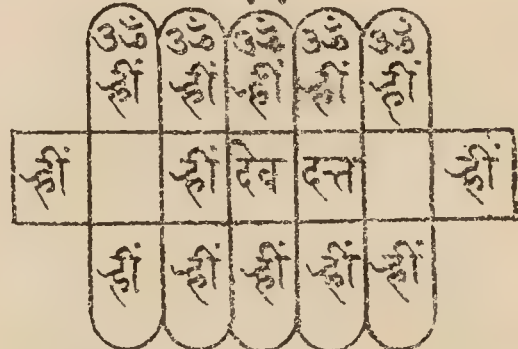 ॐ ॐ ॐ ॐ ॐ
ह्रीं ह्रीं ह्रीं ह्रीं ह्रीं
ह्रीं ह्रीं देव दत्त ह्रीं
ह्रीं ह्रीं ह्रीं ह्रीं ह्रीं